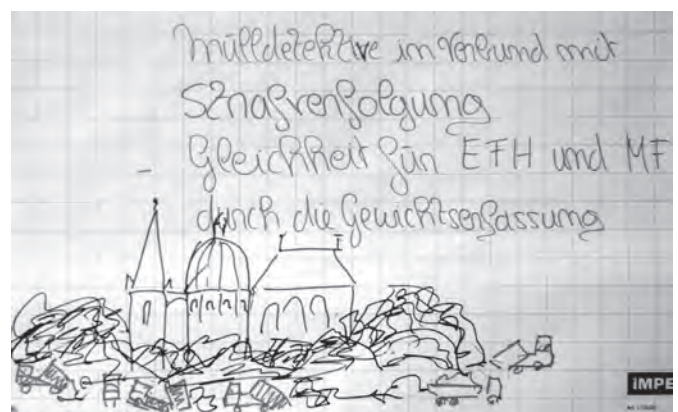 Mülldetektive im Verbund mit
Strafverfolgung
Gleichheit für EFH und MF
durch die Gewichtserfassung
IMPE